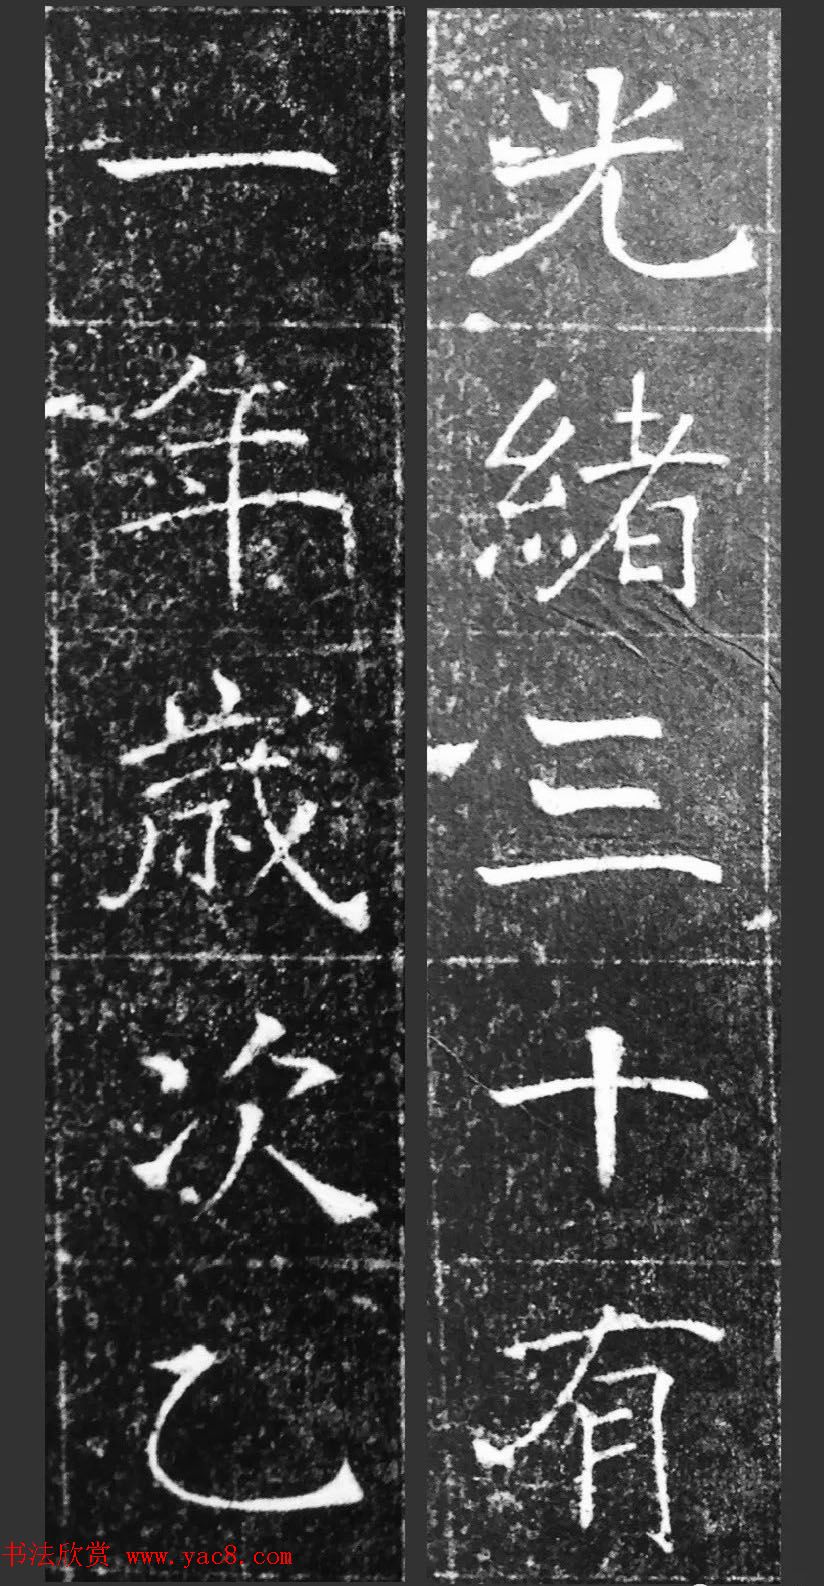 光緒三十有
一年歲次乙
书法欣赏 www.yac8.com